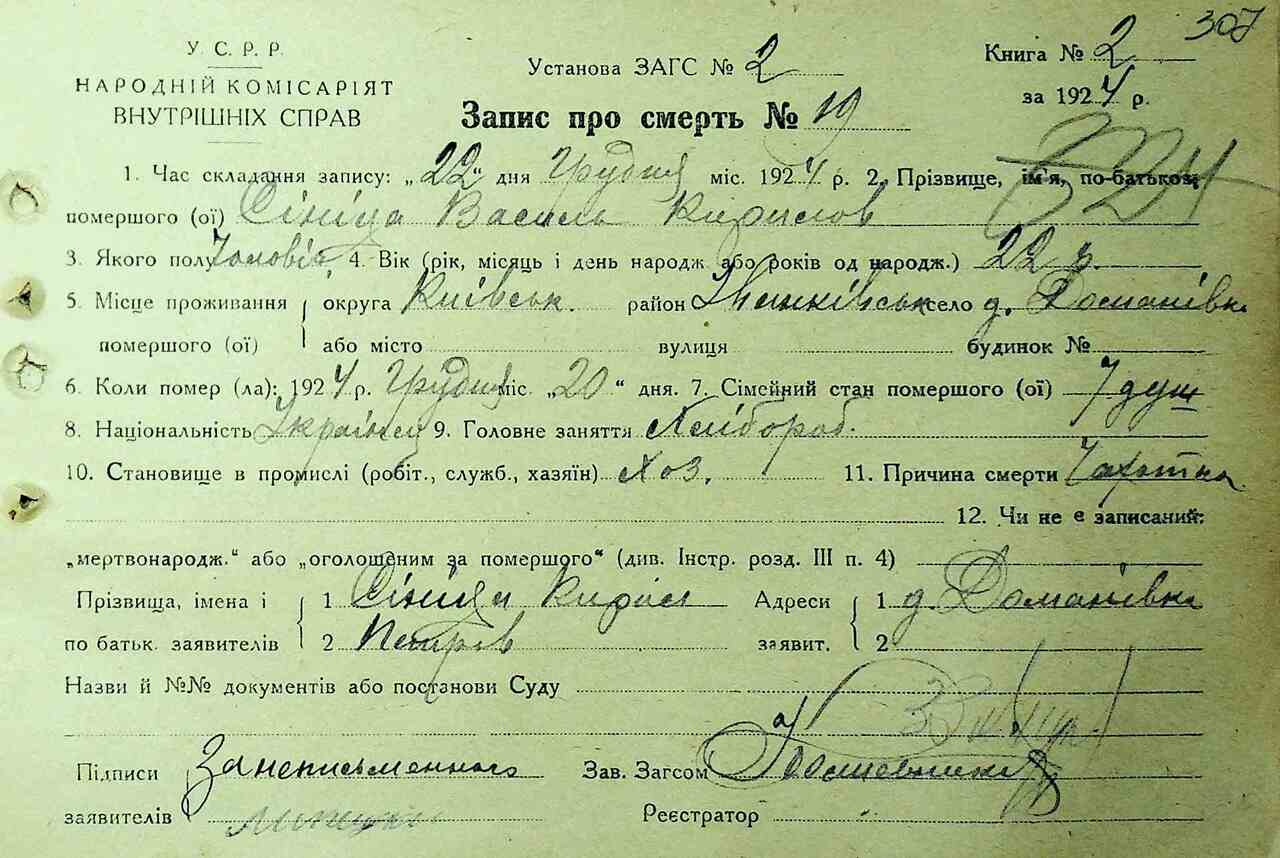 307
У. С. Р. Р.
НАРОДНІЙ КОМІСАРІЯТ
ВНУТРІШНІХ СПРАВ
Установа ЗАГС № 2
Книга № 2
за 1924 р.
Запис про смерть № 19
1. Час складання запису: „22" дня Грудня міс. 1924 р. 2. Прізвище, ім'я, по-батькові
помершого (ої) Сініца Василь Кирилов
3. Якого полу Чоловіч. 4. Вік (рік, місяць і день народж. або років од народж.) 22 р.
5. Місце проживання округа Київськ. район Іванківськ село д. Доманівка
помершого (ої) або місто вулиця будинок №
6. Коли помер (ла): 1924 р. Грудня міс. „20" дня. 7. Сімейний стан помершого (ої) 7 душ
8. Національність Українец 9. Головне заняття Хлібороб.
10. Становище в промислі (робіт., служб., хазяїн) Хоз. 11. Причина смерти Чахотка
12. Чи не є записаний:
„мертвонародж." або „оголошеним за помершого" (див. Інстр. розд. III п. 4)
Прізвища, імена і 1 Сініца Кирил Адреси 1 д. Доманівка
по батьк. заявителів 2 Петрів заявит. 2
Назви й №№ документів або постанови Суду
Підписи За неписьменного Зав. Загсом
заявителів Реєстратор